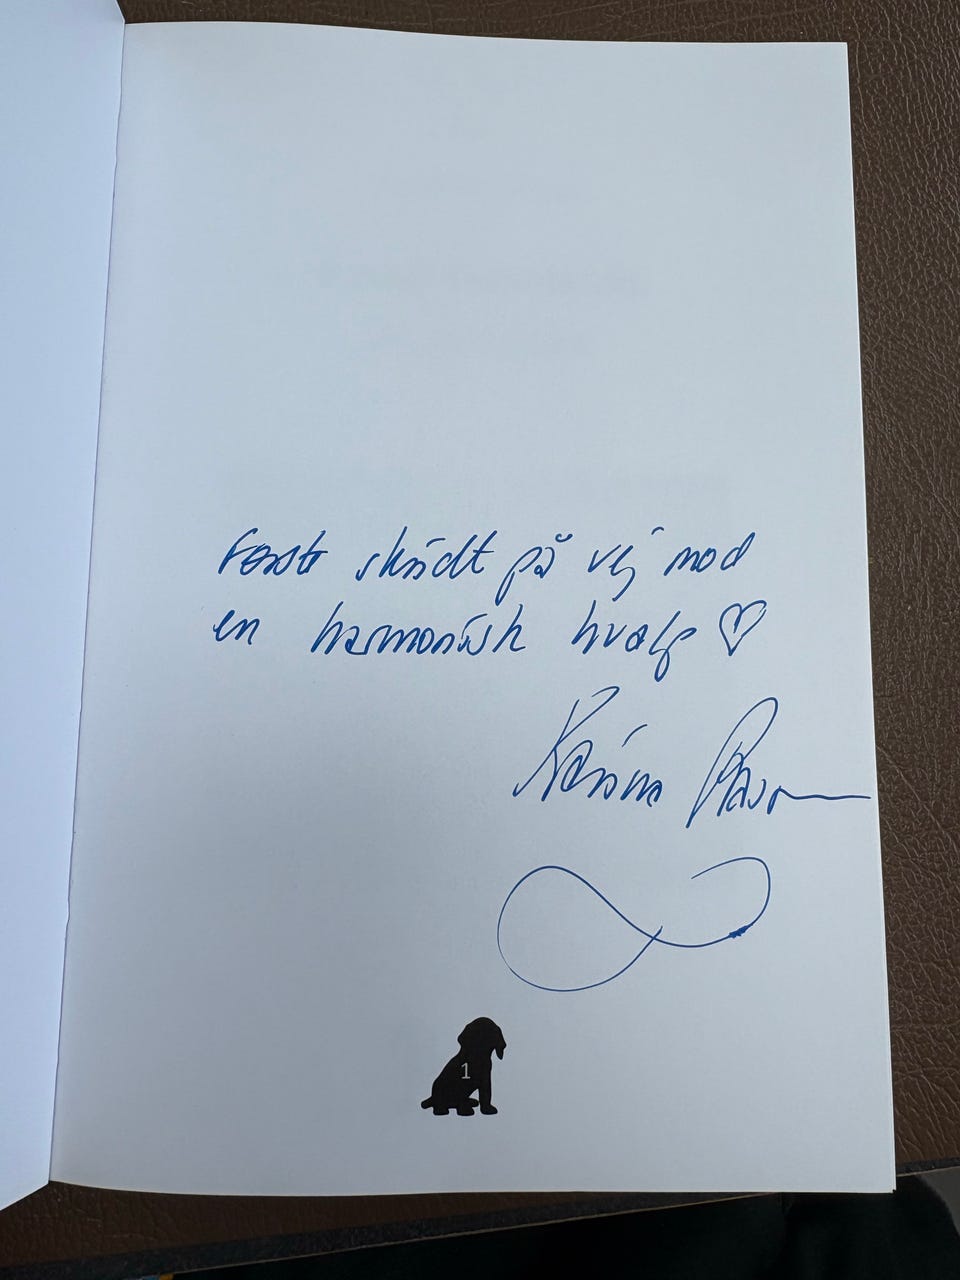 Første skridt på vej mod
en harmonisk hvalp ♡
Karina
1